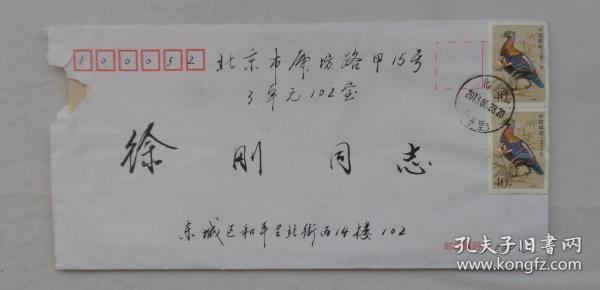 100052 北京市廊坊路甲15号
3单元102室
徐刚同志
东城区和平里北街丙14楼102
中国邮政
40
2013.06.28.20
中国邮政
40
孔夫子旧书网
www.kongfz.com